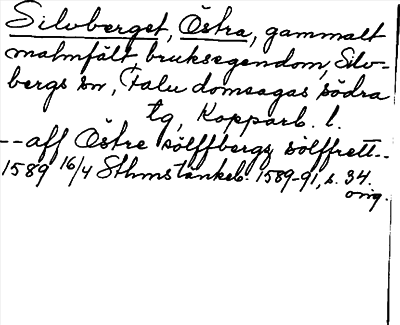 Silvberget, Östra, gammalt
malmfält, bruksegendom, Silv-
bergs sn, Falu domsagas södra
tg, Kopparb. l.
--aff Östre sölffbergz sölffrett--
1589 16/4 Sthms tänkeb. 1589-91, s. 34.
orig.